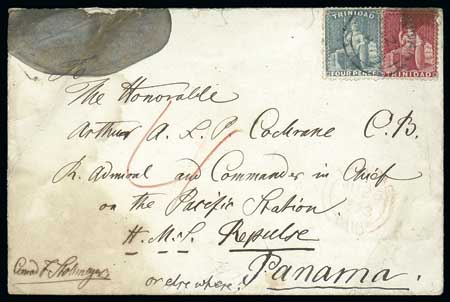 TRINIDAD
FOUR PENCE
TRINIDAD
To
The Honorable
Arthur A. L. P. Cochrane C.B.
R. Admiral and Commander in Chief
on the Pacific Station.
H.M.S. Repulse
Panama.
or elsewhere.
Conrad F. Stollmeyer